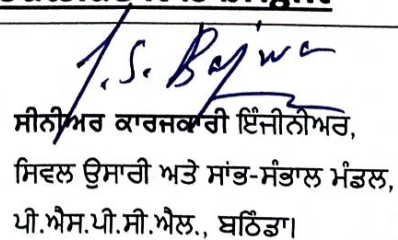 J.S. Bajwa
ਸੀਨੀਅਰ ਕਾਰਜਕਾਰੀ ਇੰਜੀਨੀਅਰ,
ਸਿਵਲ ਉਸਾਰੀ ਅਤੇ ਸਾਂਭ-ਸੰਭਾਲ ਮੰਡਲ,
ਪੀ.ਐਸ.ਪੀ.ਸੀ.ਐਲ., ਬਠਿੰਡਾ।